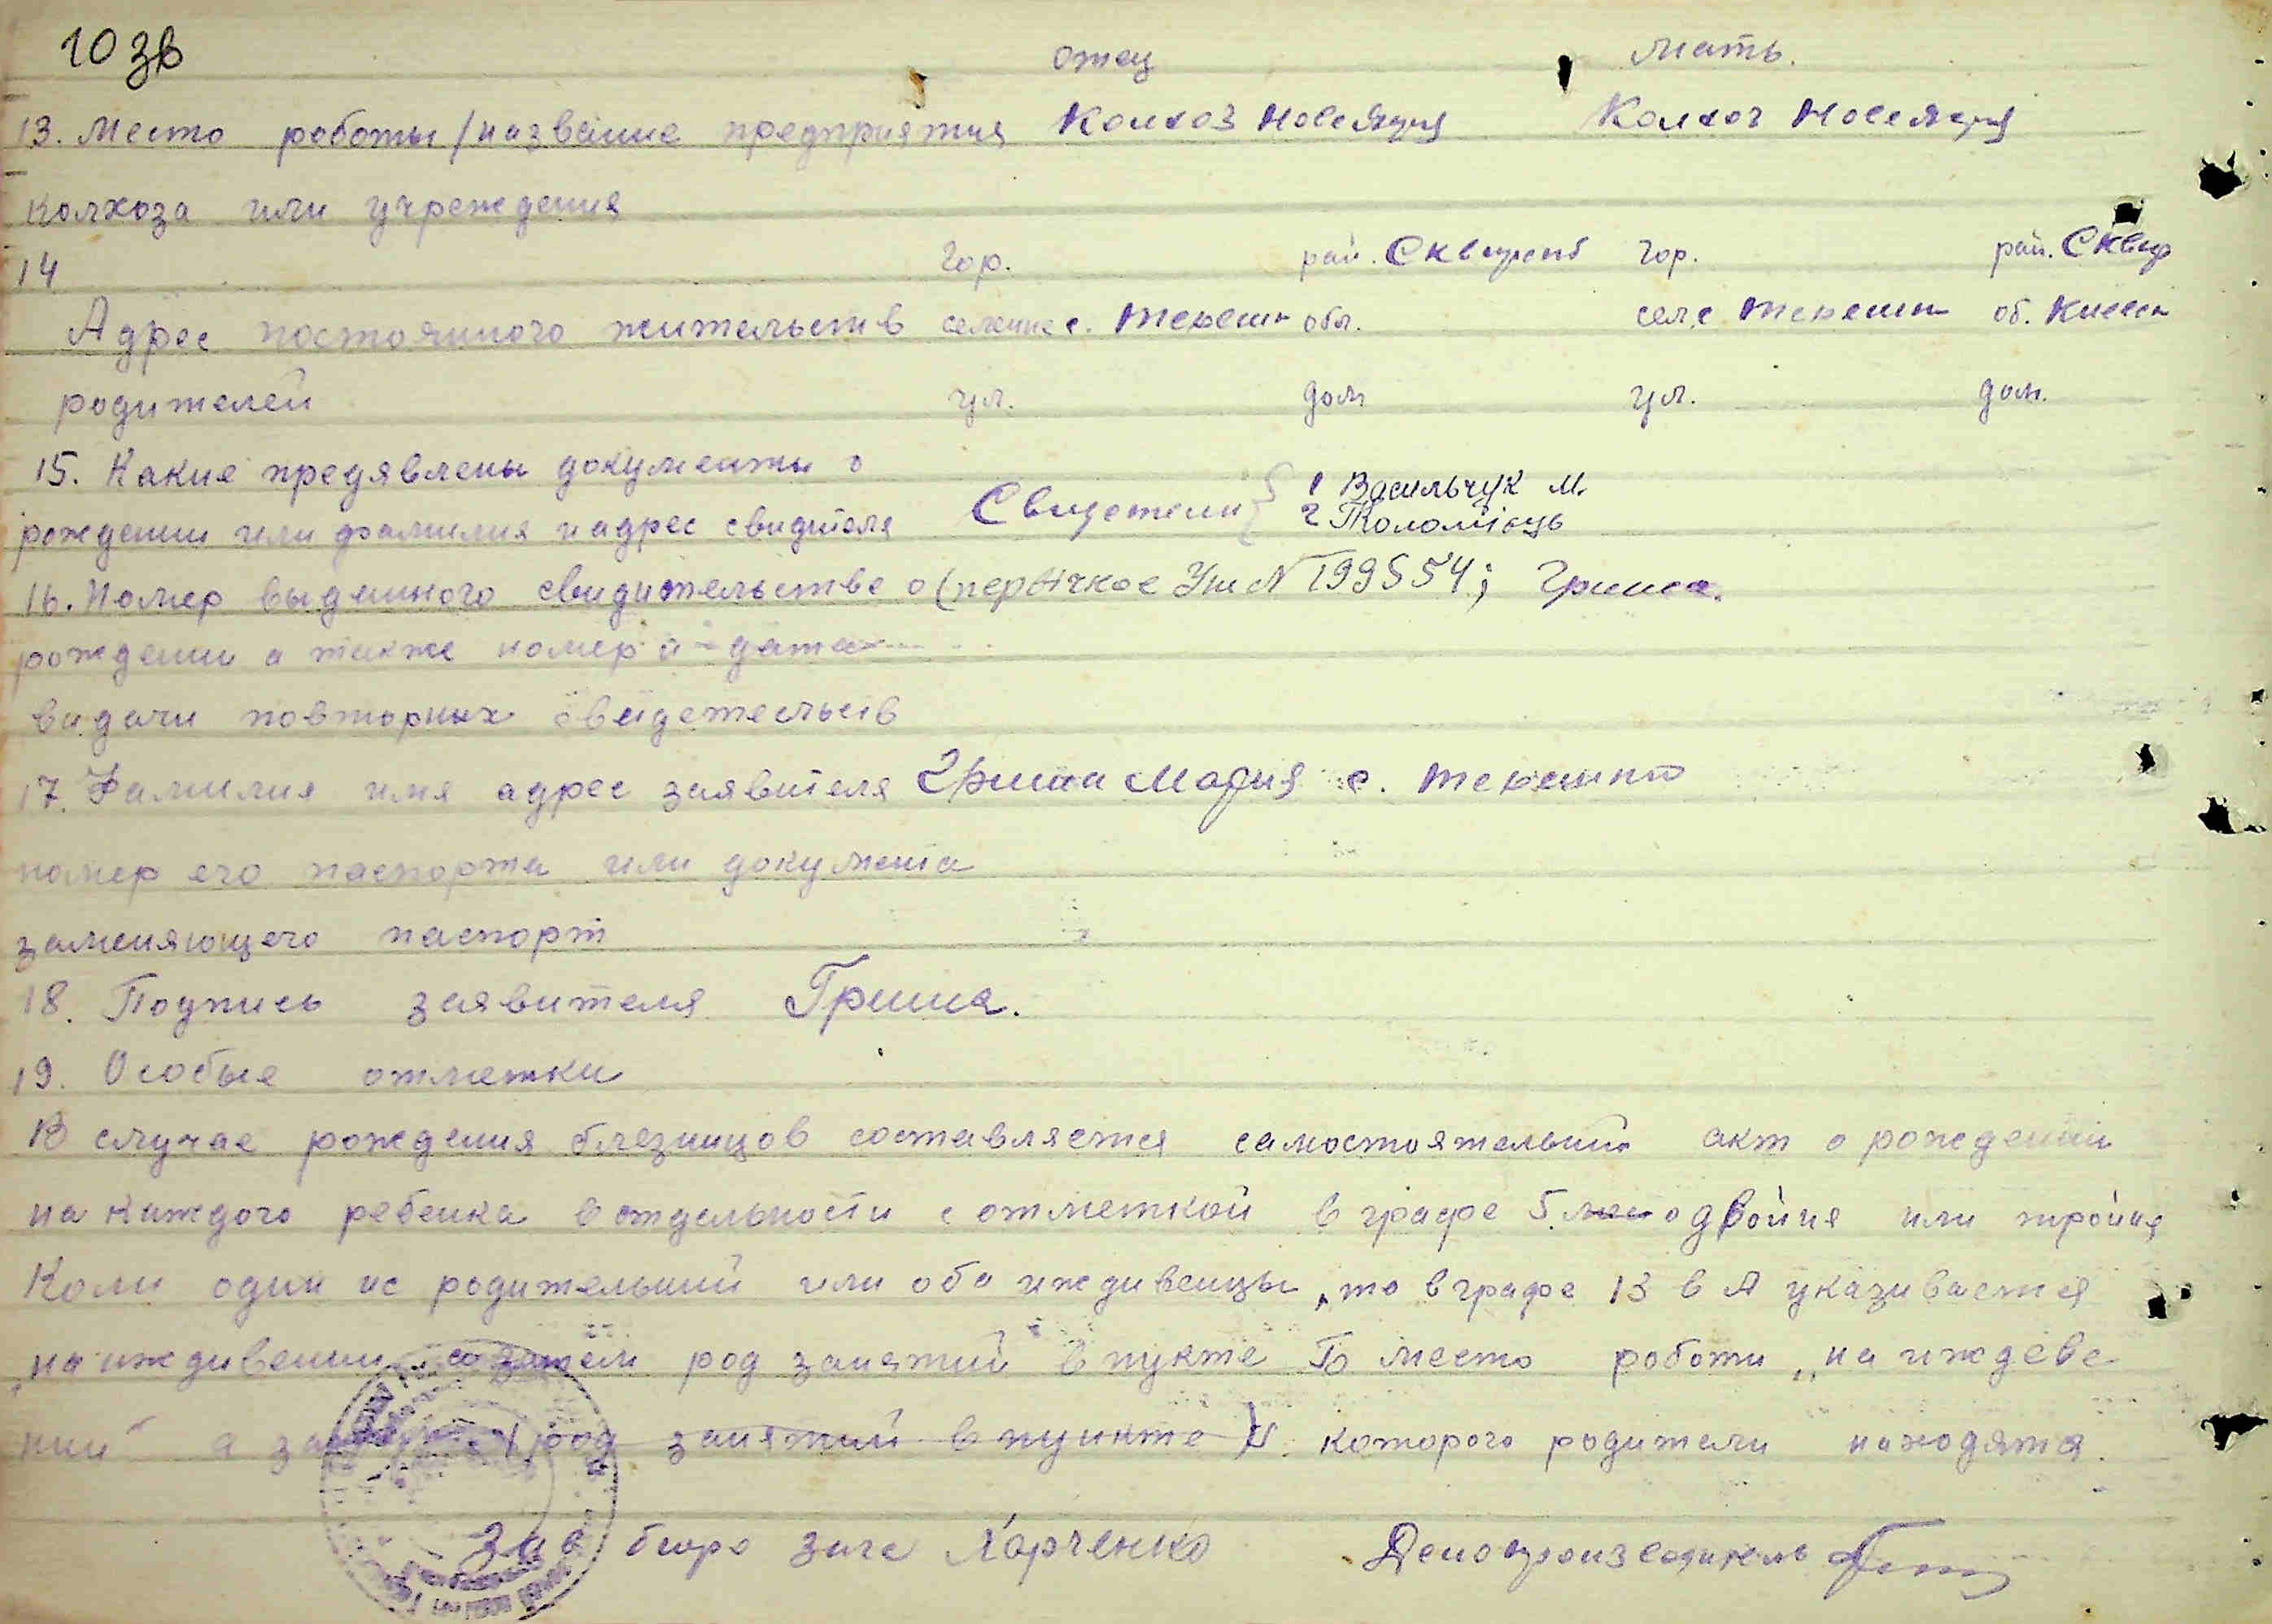 10 зв
отец мать.
13. Место роботы / название предприятия Колхоз Нове Колхоз Нове
колхоза или учреждения
14 гор. рай. Сквирский гор. рай. Сквир
Адрес постоянного жительств селение с. обл. сел. с об. Киевск
родителей ул. дом ул. дом.
15. Какие предявлены документы о
рождении или фамилия и адрес свидителя Свидетели { 1 Васильчук М.
2 Коломієць
16. Номер выданного свидительстве о (первічкое Уш N 199554; Гриша.
рождении а также номер и дата
видачи повторных свидетельств
17. Фамилия имя адрес заявителя Гриша Мария с.
номер его паспорта или документа
заменяющего паспорт
18. Подпись заявителя Гриша.
19. Особые отметки
В случае рождения близницов составляется самостоятельный акт о рождении
на каждого ребенка в отдельности с отметкой в графе 5 о двойня или тройня
Коли один ис родительний или оба иждивенцы, то в графе 13 в А указивается
"на иждивении род занятий в пукте Б место роботи "на иждеве-
нии" а род занятий в пункте которого родители находятся.
Зав бюро загс Харченко Делопроизводитель